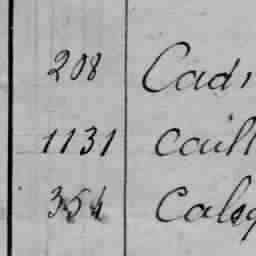 208 Cadi
1131 Caill
354 Calog